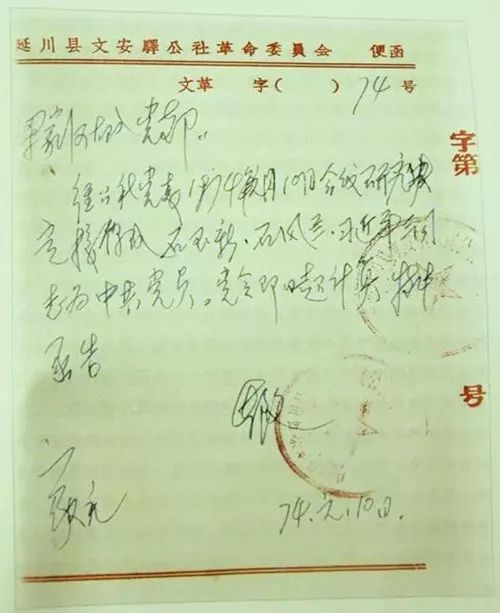 延川县文安驛公社革命委員会 便函
文革 字( ) 74 号
梁家河大队党部。
经公社党委1974年元月10日会议研究决
定接收 石玉新、石凤兰、习近平 同
志为中共党员。党令即日起计算,特此
函告
敬礼
74.元.10日.
字第
号